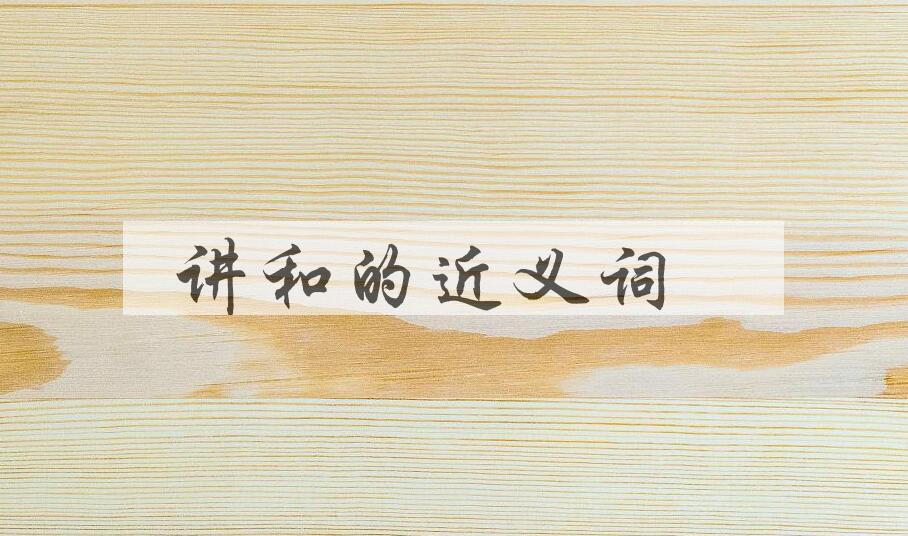 讲和的近义词